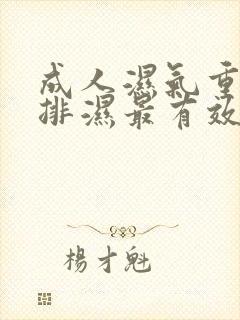 成人濕氣重
排濕最有效
楊才魁